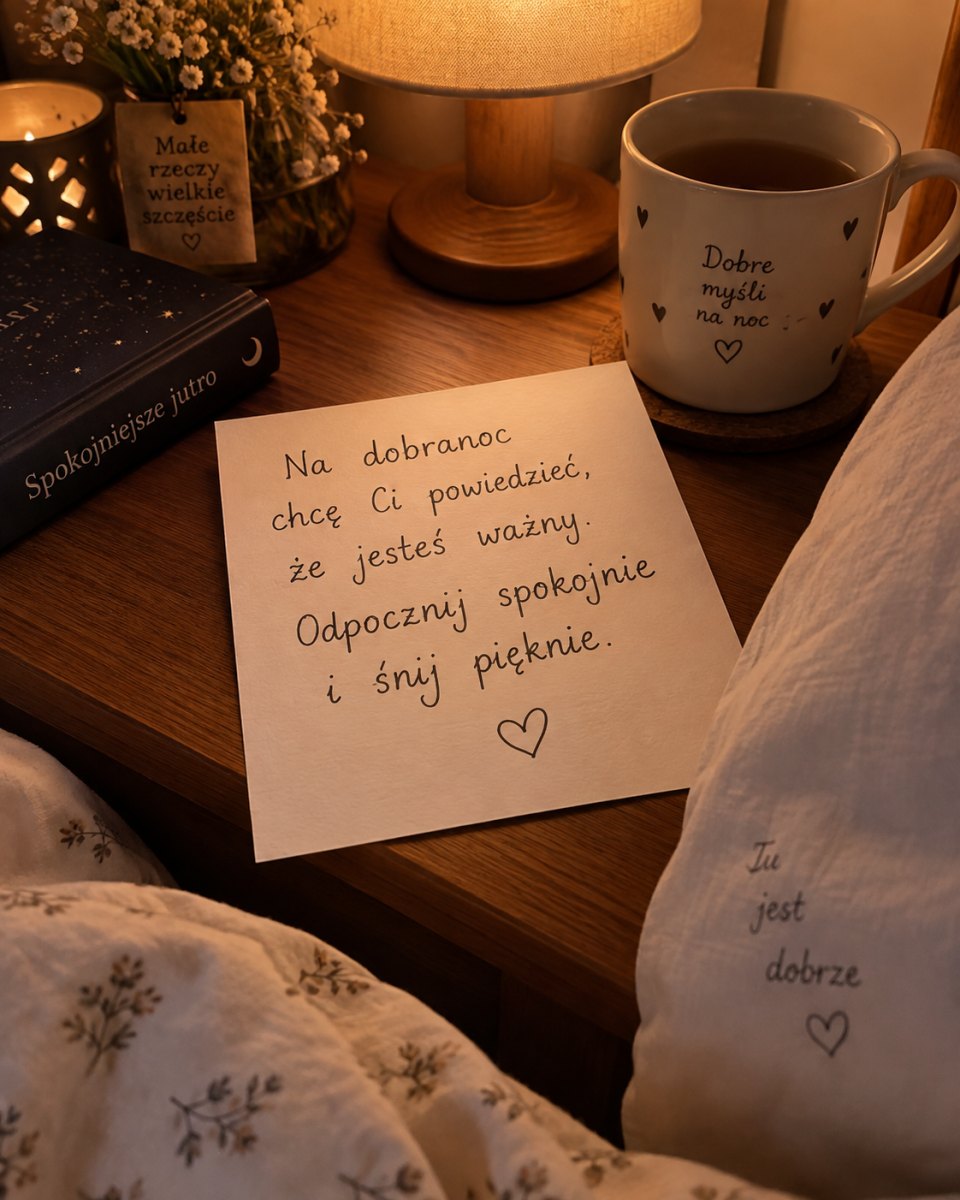 Małe
rzeczy
wielkie
szczęście
Dobre
myśli
na noc
Spokojniejsze jutro
Na dobranoc
chcę Ci powiedzieć,
że jesteś ważny.
Odpocznij spokojnie
i śnij pięknie.
Tu
jest
dobrze